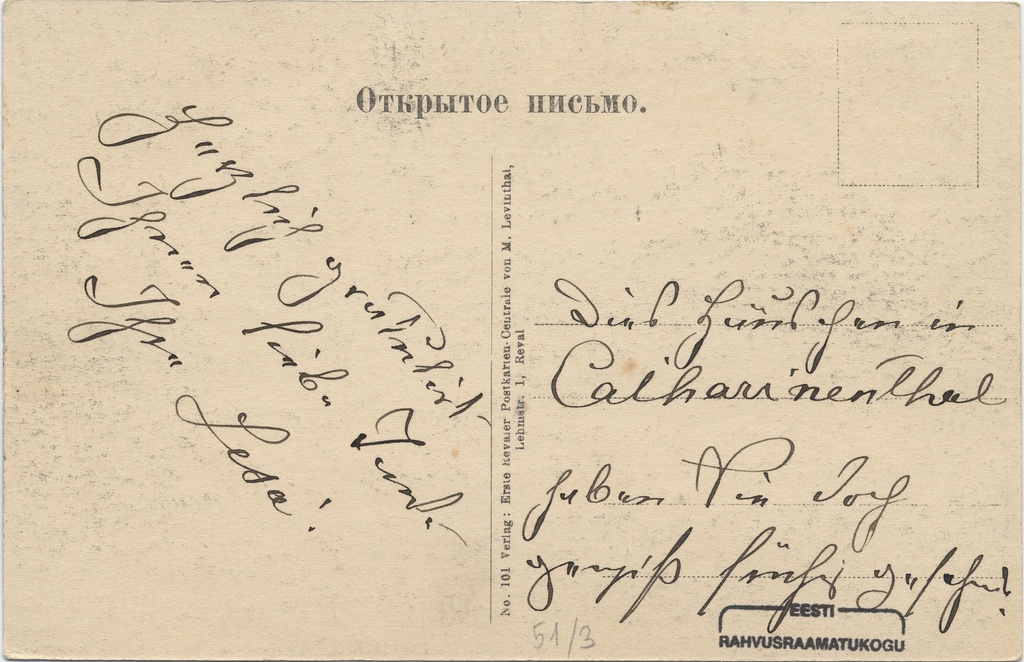 Открытое письмо.
Herzlich grüßt
Ihnen liebe
Ihre Lesa!
No. 101 Verlag: Erste Revaler Postkarten-Centrale von M. Levinthal,
Lehmstr. 1, Reval
Dies Häuschen in
Catharinenthal
haben Sie doch
gewiß gesehen?
51/3
EESTI
RAHVUSRAAMATUKOGU